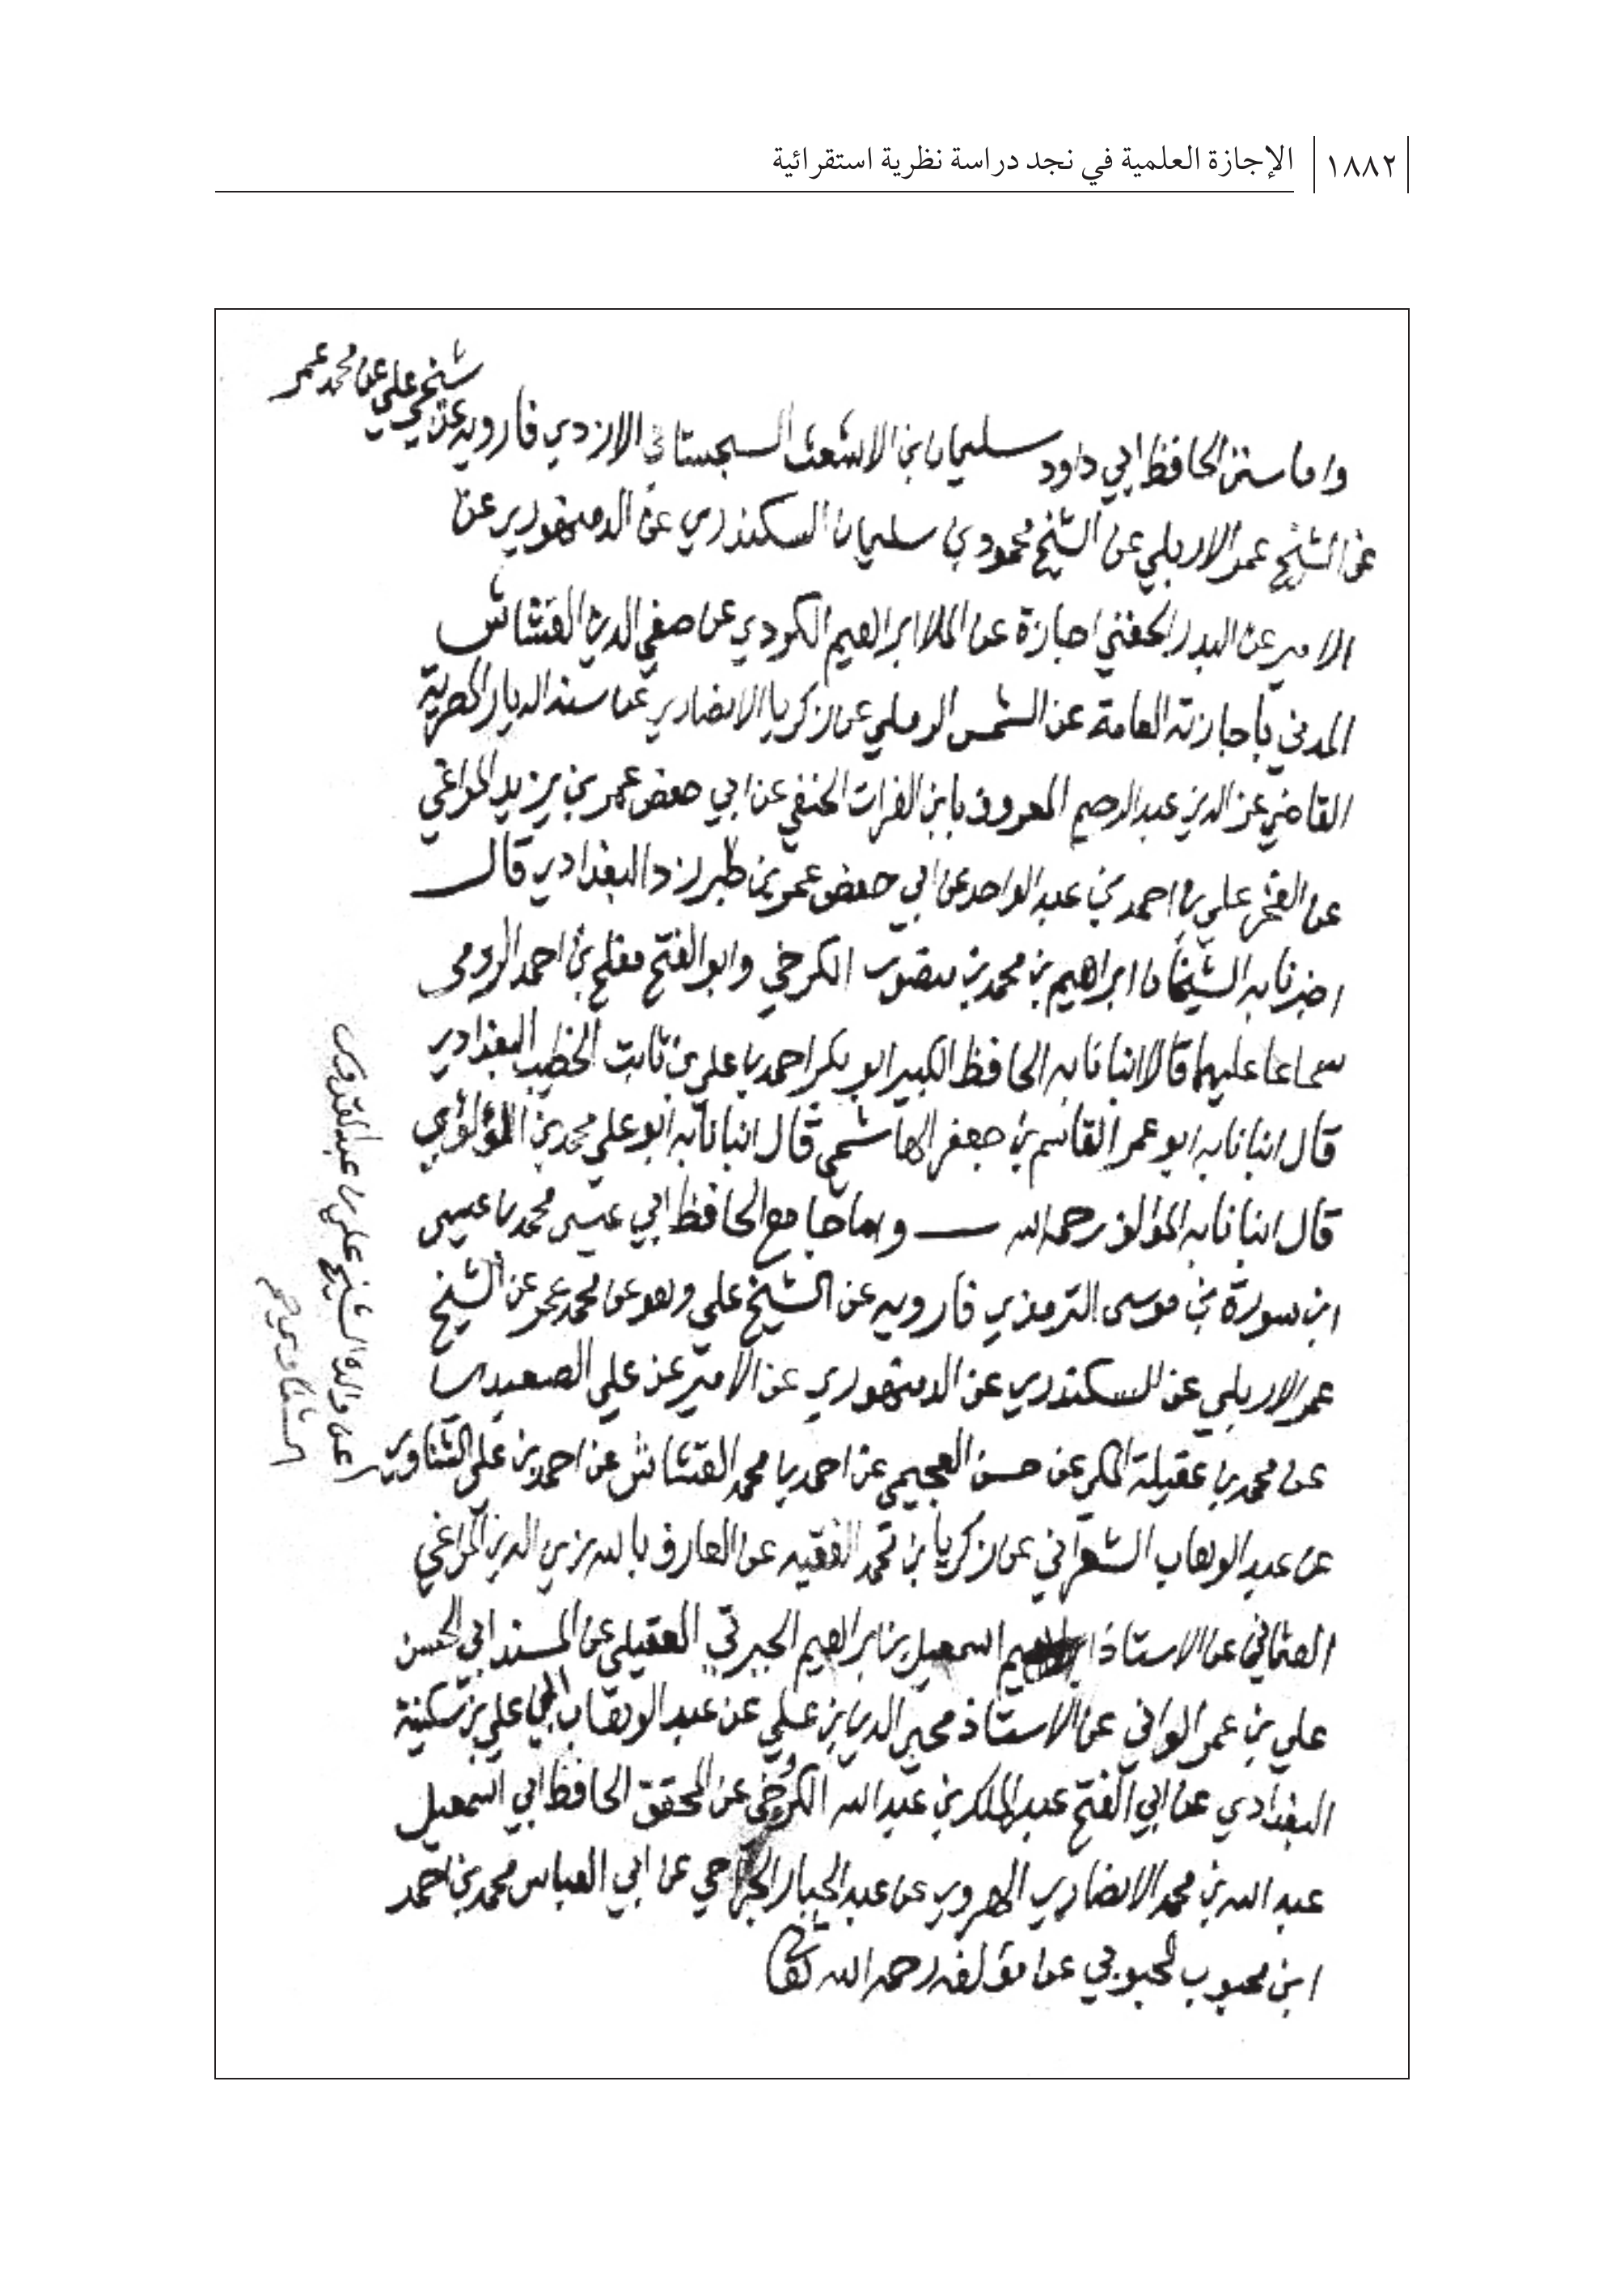 ١٨٨٢ الإجازة العلمية في نجد دراسة نظرية استقرائية
شيخي علي عن محمد عمر
واما سنن الحافظ ابي داود سليمان ابن الاشعث السجستاني الازدي فارويه عن شيخي
عن الشيخ عمر الاربلي عن الشيخ محمود بن سليمان السكندري عن الدمنهوري عن
الامير عن البدر الحفني اجازة عن الملا ابراهيم الكردي عن صفي الدين القشاشي
المدني باجازته العامة عن الشمس الرملي عن زكريا الانصاري عن سند الديار المصرية
القاضي عز الدين عبد الرحيم المعروف بابن الفرات الحنفي عن ابي حفص عمر بن يزيد المراغي
عن الفخر علي بن احمد بن عبد الواحد عن ابي حفص عمر بن طبرزد البغدادي قال
اخبرنا به الشيخان ابراهيم بن محمد بن منصور الكرخي وابو الفتح مفلح بن احمد الرومي
سماعا عليهما قالا انبانا به الحافظ الكبير ابو بكر احمد بن علي بن ثابت الخطيب البغدادي
قال انبانا به ابو عمر القاسم بن جعفر الهاشمي قال انبانا به ابو علي محمد بن اللؤلؤي
قال انبانا به المؤلف رحمه الله واما جامع الحافظ ابي عيسى محمد بن عيسى
ابن سورة بن موسى الترمذي فارويه عن الشيخ علي وهو عن محمد عمر عن الشيخ
عمر الاربلي عن السكندري عن الدمنهوري عن الامير عن علي الصعيدي
عن محمد بن عقيلة المكي عن حسن العجيمي عن احمد بن محمد القشاشي عن احمد بن علي الشناوي
عن والده الشيخ علي بن عبد القدوس
الشناوي
عن عبد الوهاب الشعراني عن زكريا بن محمد الفقيه عن العارف بالله زين الدين المراغي
العثماني عن الاستاذ اسمعيل بن ابراهيم الجبرتي العقيلي عن المسند ابي الحسن
علي بن عمر الواني عن الاستاذ محيي الدين بن علي عن عبد الوهاب بن علي بن سكينة
البغدادي عن ابي الفتح عبد الملك بن عبد الله الكرخي عن المحقق الحافظ ابي اسمعيل
عبد الله بن محمد الانصاري الهروي عن عبد الجبار الجراحي عن ابي العباس محمد بن احمد
ابن محبوب المحبوبي عن مؤلفه رحمه الله تعالى